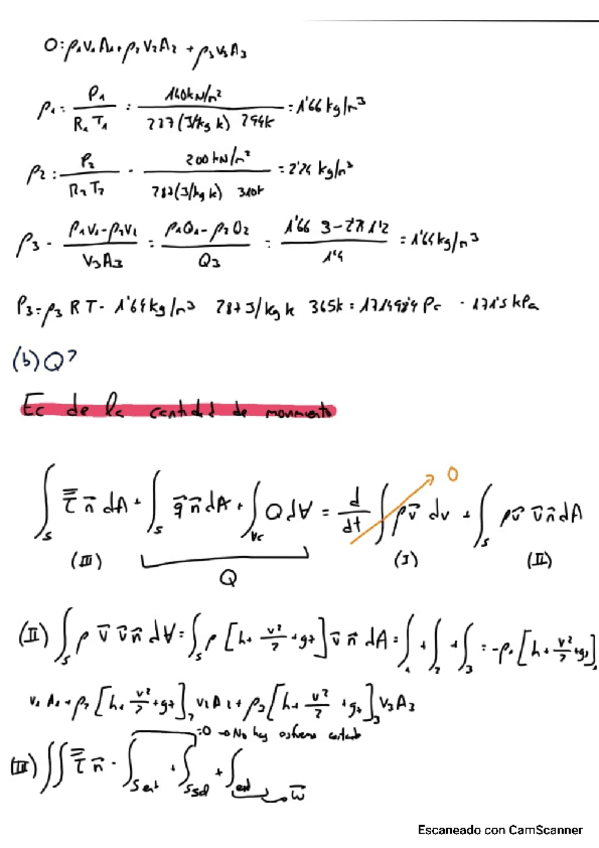 0 = ρ₁v₁A₁ + ρ₂v₂A₂ + ρ₃v₃A₃
ρ₁ = P₁ / (R₁T₁) = 160kN/m² / (287(J/kg k) 294k) = 1'66 kg/m³
ρ₂ = P₂ / (R₂T₂) = 200kN/m² / (287(J/kg k) 310k) = 2'24 kg/m³
ρ₃ = (ρ₁v₁-ρ₂v₂) / (V₃A₃) = (ρ₁Q₁-ρ₂Q₂) / Q₃ = / 1'4 = 1'64 kg/m³
P₃ = ρ₃ R T = 1'64kg/m³ 287J/kg k 365k = = 171'5 kPa
(b) Q?
Ec de la cantidad de movimiento
∫ₛ τ n dA + ∫ₛ q n dA + ∫ Q dV = d/dt ∫ ρv dv + ∫ₛ ρv v n dA
0
(III) Q (I) (II)
(II) ∫ₛ ρ v v n dV = ∫ₛ ρ [h + v²/2 + gz] v n dA = ∫₁ + ∫₂ + ∫₃ = -ρ₁ [h + v²/2 + gz]₁
v₁A₁ + ρ₂ [h + v²/2 + gz]₂ v₂A₂ + ρ₃ [h + v²/2 + gz]₃ v₃A₃
=0 → No hay esfuerzo cortado
(III) ∬ τ n = ∫ Sent + ∫ Ssal + ∫ W
Escaneado con CamScanner